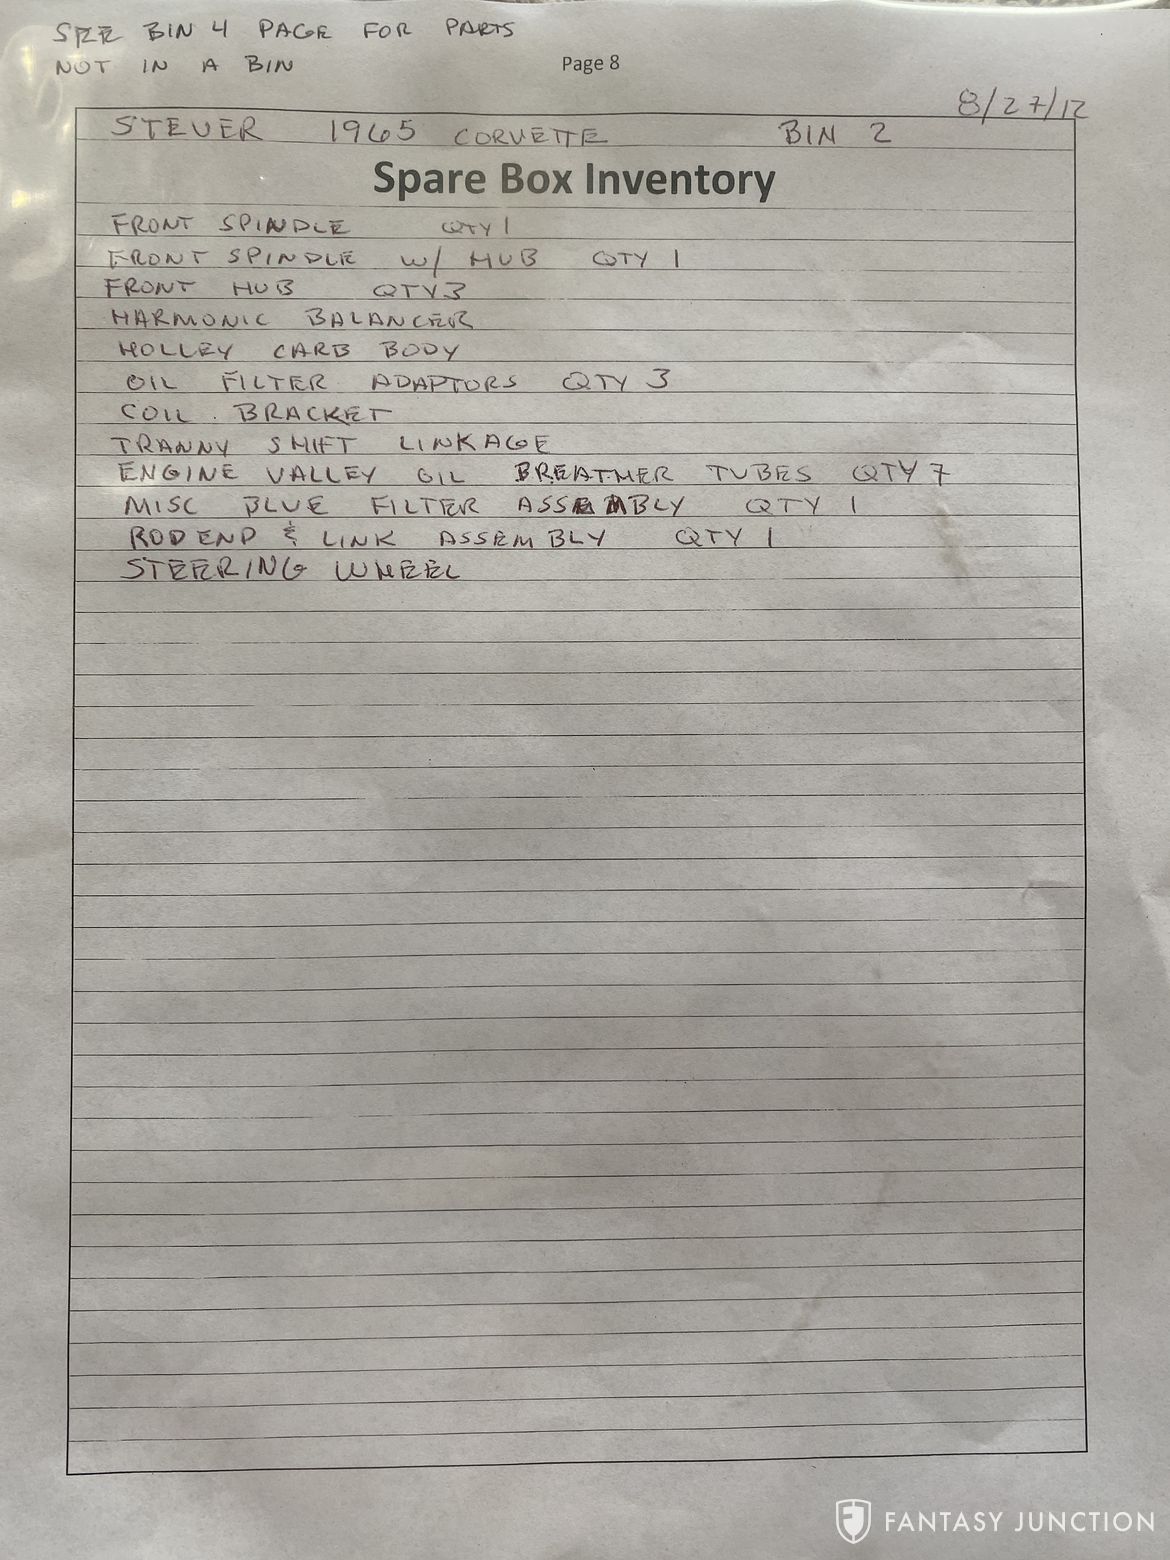 SEE BIN 4 PAGE FOR PARTS
NOT IN A BIN
Page 8
8/27/12
STEVER 1965 CORVETTE BIN 2
Spare Box Inventory
FRONT SPINDLE QTY 1
FRONT SPINDLE W/ HUB QTY 1
FRONT HUB QTY 3
HARMONIC BALANCER
HOLLEY CARB BODY
OIL FILTER ADAPTORS QTY 3
COIL BRACKET
TRANNY SHIFT LINKAGE
ENGINE VALLEY OIL BREATHER TUBES QTY 7
MISC BLUE FILTER ASSEMBLY QTY 1
ROD END & LINK ASSEMBLY QTY 1
STEERING WHEEL
FANTASY JUNCTION